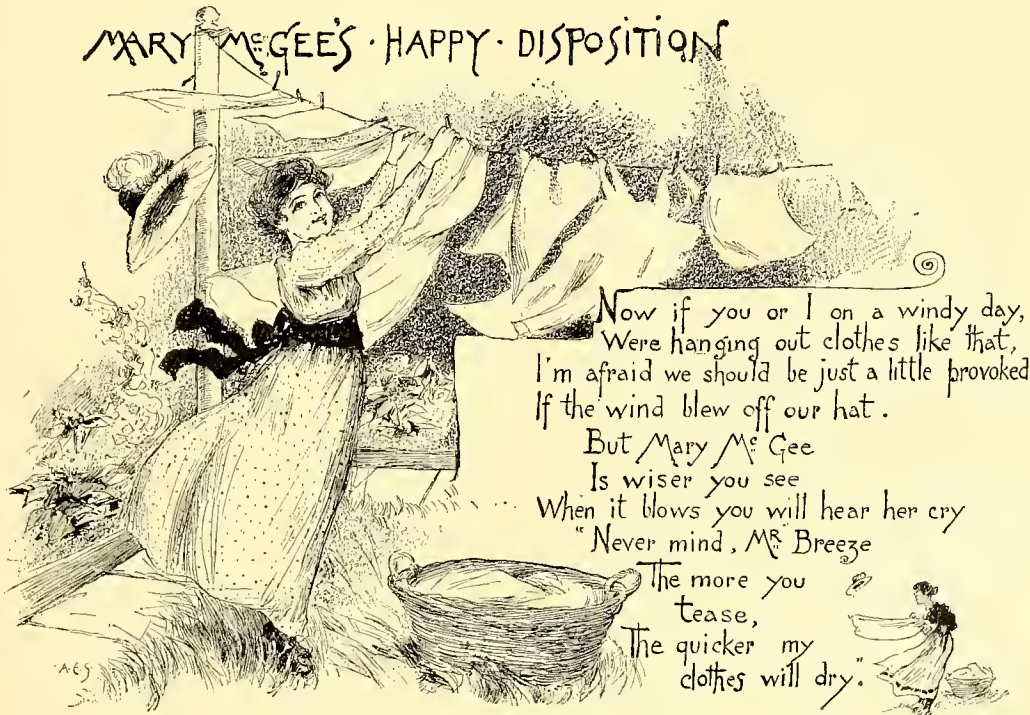 MARY Mc GEE'S · HAPPY · DISPOSITION
Now if you or I on a windy day,
Were hanging out clothes like that,
I'm afraid we should be just a little provoked
If the wind blew off our hat.
But Mary Mc Gee
Is wiser you see
When it blows you will hear her cry
"Never mind, MR Breeze
The more you
tease,
The quicker my
clothes will dry."
A.E.S